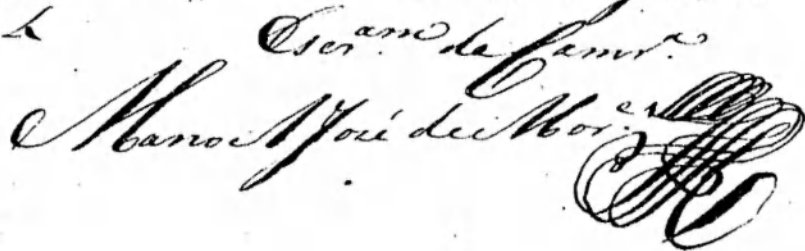 Escr.am de Camr.a
Manoel José de Mor.es